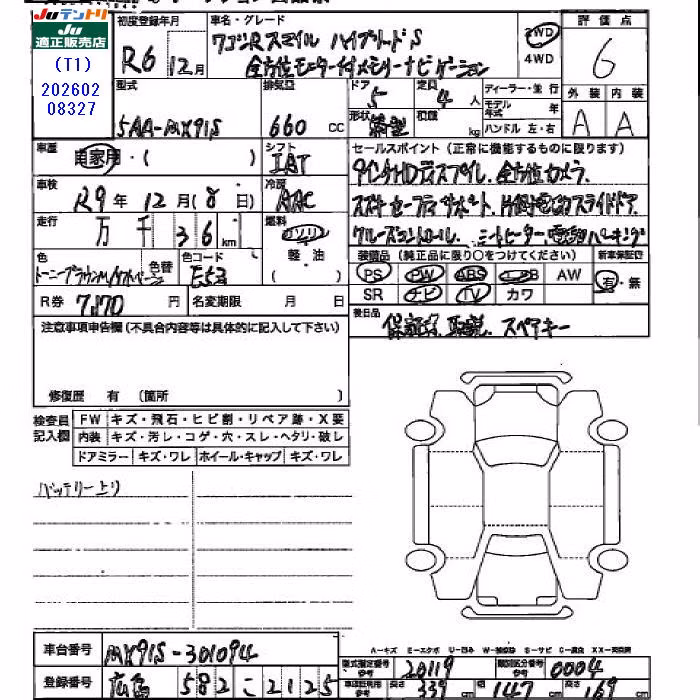 Juテントリ
Ju
適正販売店
(T1)
202602
08327
初度登録年月
R6年12月
車名・グレード
ワゴンRスマイル ハイブリッドS
全方位モニター付メモリーナビゲーション
2WD
4WD
評価点
6
型式
5AA-MX91S
排気量
660 CC
ドア
5
定員
4人
形状
積載
kg
ディーラー・並行
モデル年式 年
ハンドル 左・右
外装
内装
A
A
車歴
自家用・( )
シフト
IAT
セールスポイント (正常に機能するものに限ります)
9インチHDディスプレイ、全方位カメラ、
スズキセーフティサポート、片側電動スライドドア、
クルーズコントロール、シートヒーター、電動パーキング
車検
R9年12月(8日)
冷房
AAC
走行
万 千 36 km
燃料
ガソリン
軽・油
( )
色
色替
色コード
E53
R券
7,170円
名変期限 月 日
装備品 (純正品に限り○をつけてください)
新車保証書
PS PW ABS エアB AW
SR ナビ TV カワ
有・無
後日品
保証書、取説、スペアキー
注意事項申告欄(不具合内容等は具体的に記入して下さい)
修復歴 有 (箇所 )
検査員
記入欄
FW キズ・飛石・ヒビ割・リペア跡・X要
内装 キズ・汚レ・コゲ・穴・スレ・ヘタリ・破レ
ドアミラー キズ・ワレ ホイール・キャップ キズ・ワレ
バッテリー上り
車台番号
MX91S-301094
登録番号
広島 582 こ 2125
A-キズ E-エクボ U-凹み W-補修跡 S-サビ C-腐食 XX-交換済
型式指定番号
参考
20119
類別区分番号
参考
0004
車体証明用
参考
長さ 339 cm
幅 147 cm
高さ 169 cm